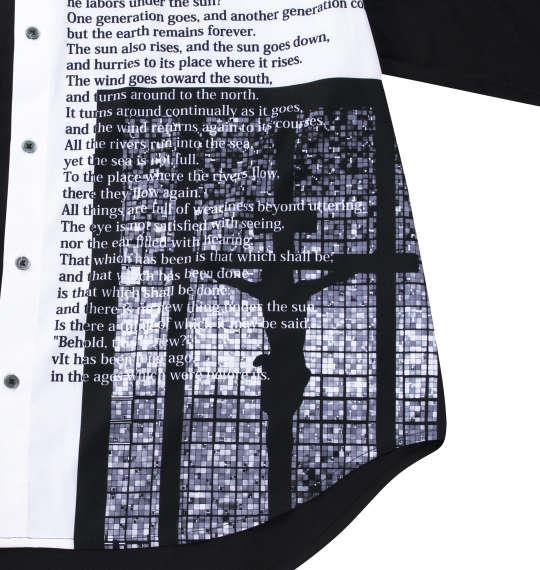 he labors under the sun?
One generation goes, and another generation co
but the earth remains forever.
The sun also rises, and the sun goes down,
and hurries to its place where it rises.
The wind goes toward the south,
and turns around to the north.
It turns around continually as it goes,
and the wind returns again to its courses.
All the rivers run into the sea,
yet the sea is not full.
To the place where the rivers flow,
there they flow again.
All things are full of weariness beyond uttering.
The eye is not satisfied with seeing,
nor the ear filled with hearing.
That which has been is that which shall be;
and that which has been done
is that which shall be done:
and there is no new thing under the sun.
Is there a thing of which it may be said,
"Behold, this is new?"
vIt has been long ago,
in the ages which were before us.